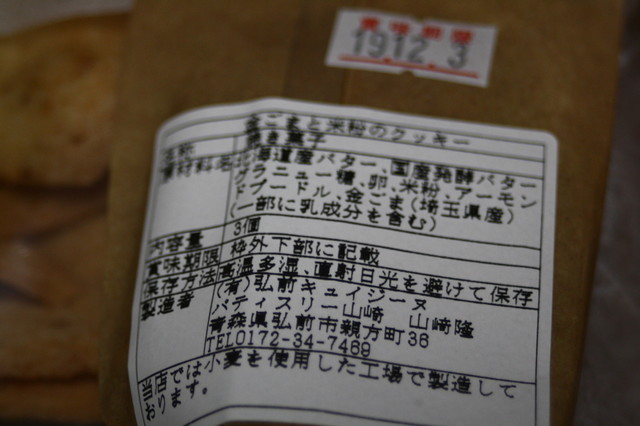 賞味期限
19.12. 3
金ごまと米粉のクッキー
名称 焼き菓子
原材料名 北海道産バター、国産発酵バター
グラニュー糖、卵、米粉、アーモン
ドプードル、金ごま(埼玉県産)
(一部に乳成分を含む)
内容量 3個
賞味期限 枠外下部に記載
保存方法 高温多湿、直射日光を避けて保存
製造者 (有)弘前キュイジーヌ
パティスリー山崎 山崎隆
青森県弘前市親方町36
TEL0172-34-7469
当店では小麦を使用した工場で製造して
おります。